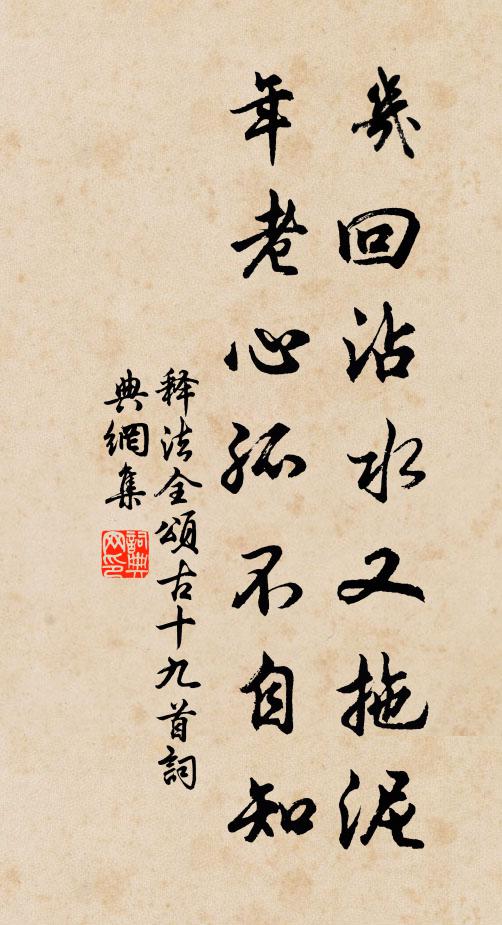 幾回沾水又拖泥
年老心孤不自知
释法全頌古十九首詞
典網集
詞典网印